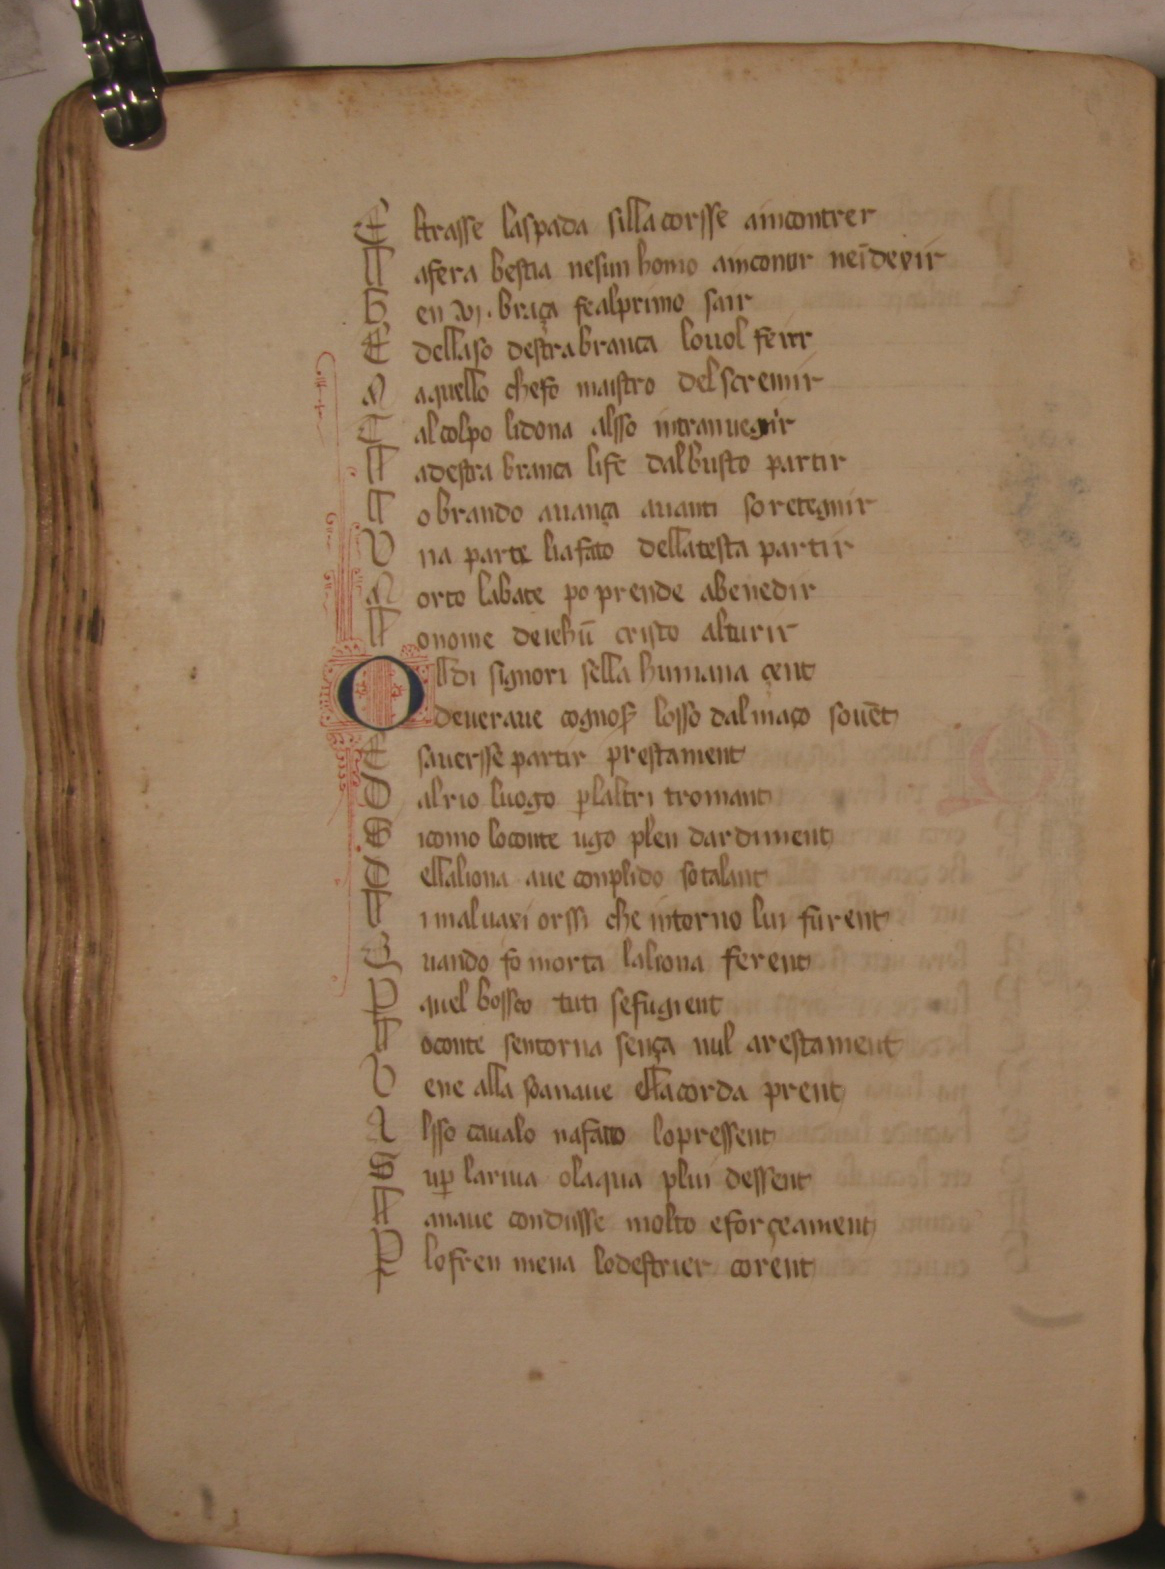 E ltrasse laspada silla corsse aincontrer
L afera bestia nesun homo ainconur neīdevir
B en .vi. braça fealprimo sair
E dellaso destra branca lovol ferir
M aquello chefo maistro del scremir
T al colpo lidona alsso intranvegnir
L adestra branca life dalbusto partir
L o brando avança avanti so retegnir
V na parte liafato dellatesta partir
M orto labate po prende abenedir
L onome deiehū cristo alturir
O Ldi signori sella humana çent
deveraue cognos losso dalmaço sovēt
E saversse partir prestament
D alrio luogo plaltri tromant
S icomo loconte ugo plen dardiment
D ellaliona ave conplido sotalant
L i malvaxi orssi che intorno lui furent
Q uando fo morta laliona ferent
P quel bossco tuti sefugient
L oconte sentorna sença nul arestament
V ene alla soanave ellacorda prent
A lsso cavalo nafato lopressent
S up lariva olaqua plui dessent
L anave condusse molto eforçeament
P lofren mena lodestrier corent